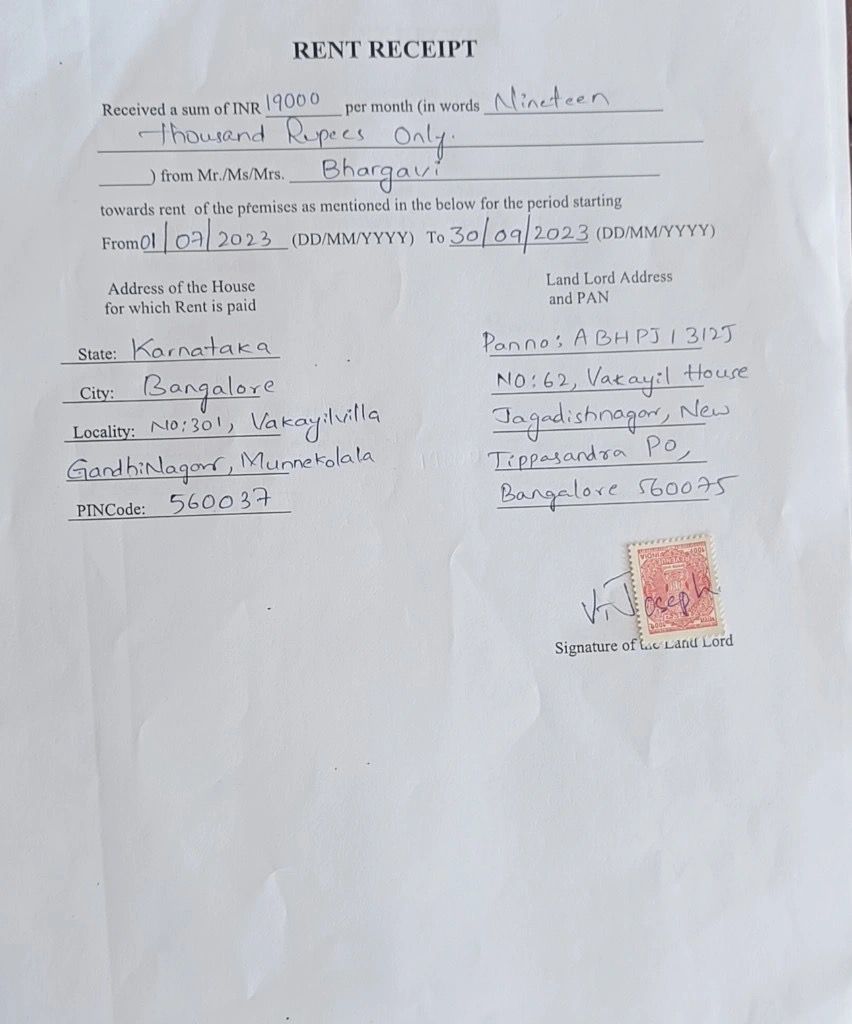 RENT RECEIPT
Received a sum of INR 19000 per month (in words Nineteen
Thousand Rupees Only.
) from Mr./Ms/Mrs. Bhargavi
towards rent of the premises as mentioned in the below for the period starting
From 01/07/2023 (DD/MM/YYYY) To 30/09/2023 (DD/MM/YYYY)
Address of the House
for which Rent is paid
State: Karnataka
City: Bangalore
Locality: NO:301, Vakayilvilla
GandhiNagar, Munnekolala
PINCode: 560037
Land Lord Address
and PAN
Panno: ABHPJ1312J
NO:62, Vakayil House
Jagadishnagar, New
Tippasandra PO,
Bangalore 560075
V.J Joseph
Signature of the Land Lord